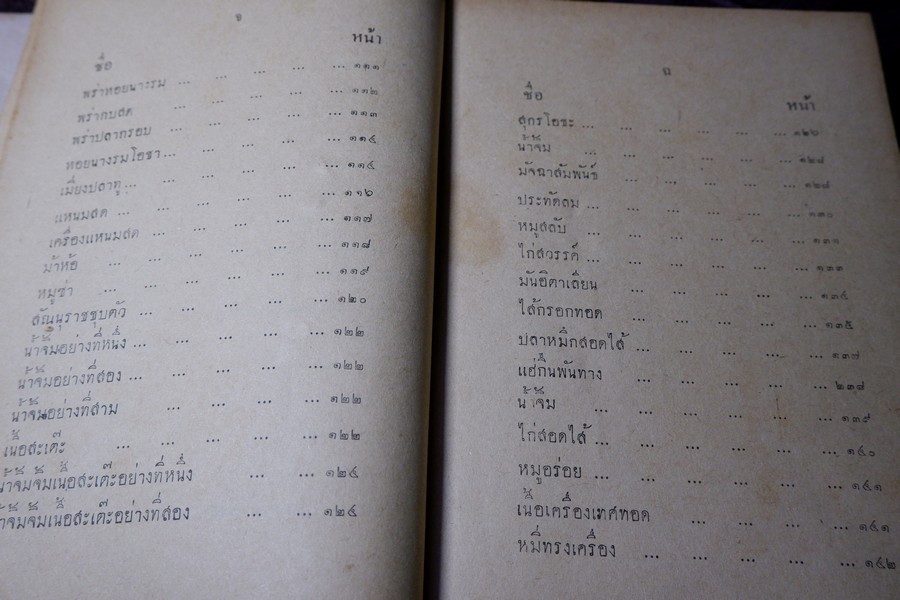 ข
ชื่อ หน้า
พร่าหอยนางรม ... ... ... ... ๑๑๑
พร่ากบสด ... ... ... ... ๑๑๒
พร่าปลากรอบ ... ... ... ... ๑๑๓
หอยนางรมโอชา ... ... ... ... ๑๑๔
เมี่ยงปลาทู ... ... ... ... ๑๑๕
แหนมสด ... ... ... ... ๑๑๖
เครื่องแหนมสด ... ... ... ... ๑๑๗
ม้าห้อ ... ... ... ... ๑๑๘
หมูซ่า ... ... ... ... ๑๑๙
... ... ... ... ๑๒๐
น้ำจิ้มอย่างที่หนึ่ง ... ... ... ๑๒๒
น้ำจิ้มอย่างที่สอง ... ... ... ... ๑๒๒
น้ำจิ้มอย่างที่สาม ... ... ... ๑๒๒
เนื้อสะเต๊ะ ... ... ... ... ๑๒๒
น้ำจิ้มจิ้มเนื้อสะเต๊ะอย่างที่หนึ่ง ... ... ๑๒๔
น้ำจิ้มจิ้มเนื้อสะเต๊ะอย่างที่สอง ... ... ๑๒๔
ฃ
ชื่อ หน้า
สุกรโอชะ ... ... ... ... ... ๑๒๖
น้ำจิ้ม ... ... ... ... ... ๑๒๘
มัจฉาสัมพันธ์ ... ... ... ... ๑๒๘
ประทัดลม ... ... ... ... ... ๑๓๐
หมูสลับ ... ... ... ... ... ๑๓๑
ไก่สวรรค์ ... ... ... ... ... ๑๓๓
มันอิตาเลียน ... ... ... ... ๑๓๔
ไส้กรอกทอด ... ... ... ... ๑๓๕
ปลาหมึกสอดไส้ ... ... ... ... ๑๓๗
แฮ่กึ๊นพันทาง ... ... ... ... ๒๓๘
น้ำจิ้ม ... ... ... ... ... ๑๓๙
ไก่สอดไส้ ... ... ... ... ... ๑๔๐
หมูอร่อย ... ... ... ... ... ๑๔๑
เนื้อเครื่องเทศทอด ... ... ... ... ๑๔๑
หมี่ทรงเครื่อง ... ... ... ... ... ๑๔๒